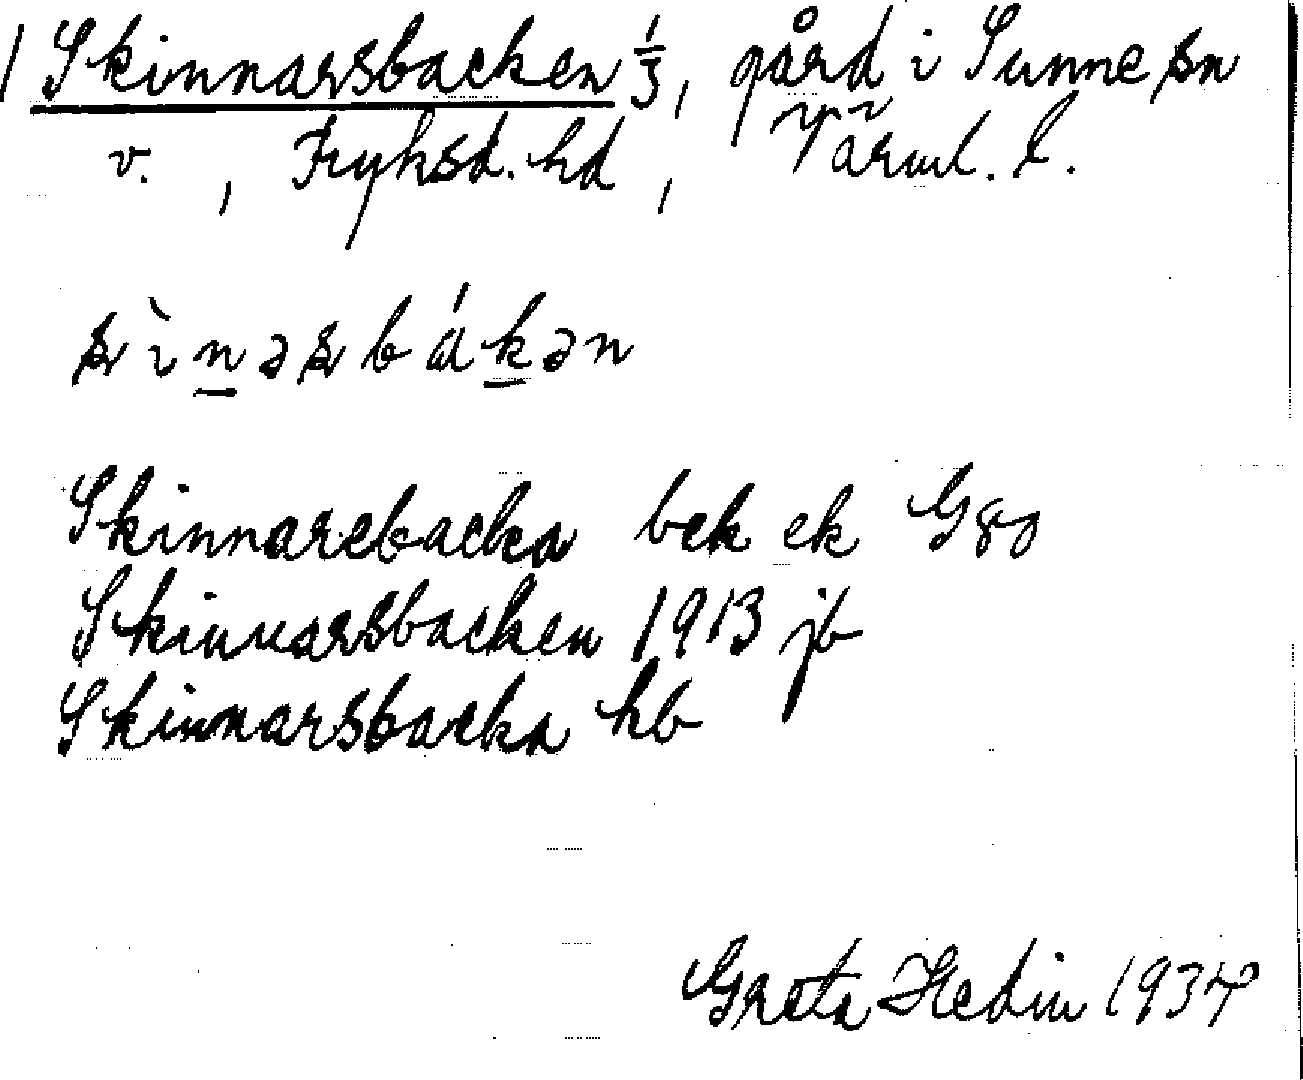 1 Skinnarsbacken 1/3, gård i Sunne sn
v. , Fryksd. hd , Värml. l.
ʂìn̲əʂbák̲ən
Skinnarebacka bek ek G80
Skinnarsbacken 1913 jb
Skinnarsbacka hb
Greta Hedin 1934